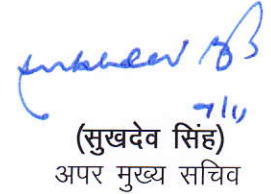 7/11
(सुखदेव सिंह)
अपर मुख्य सचिव